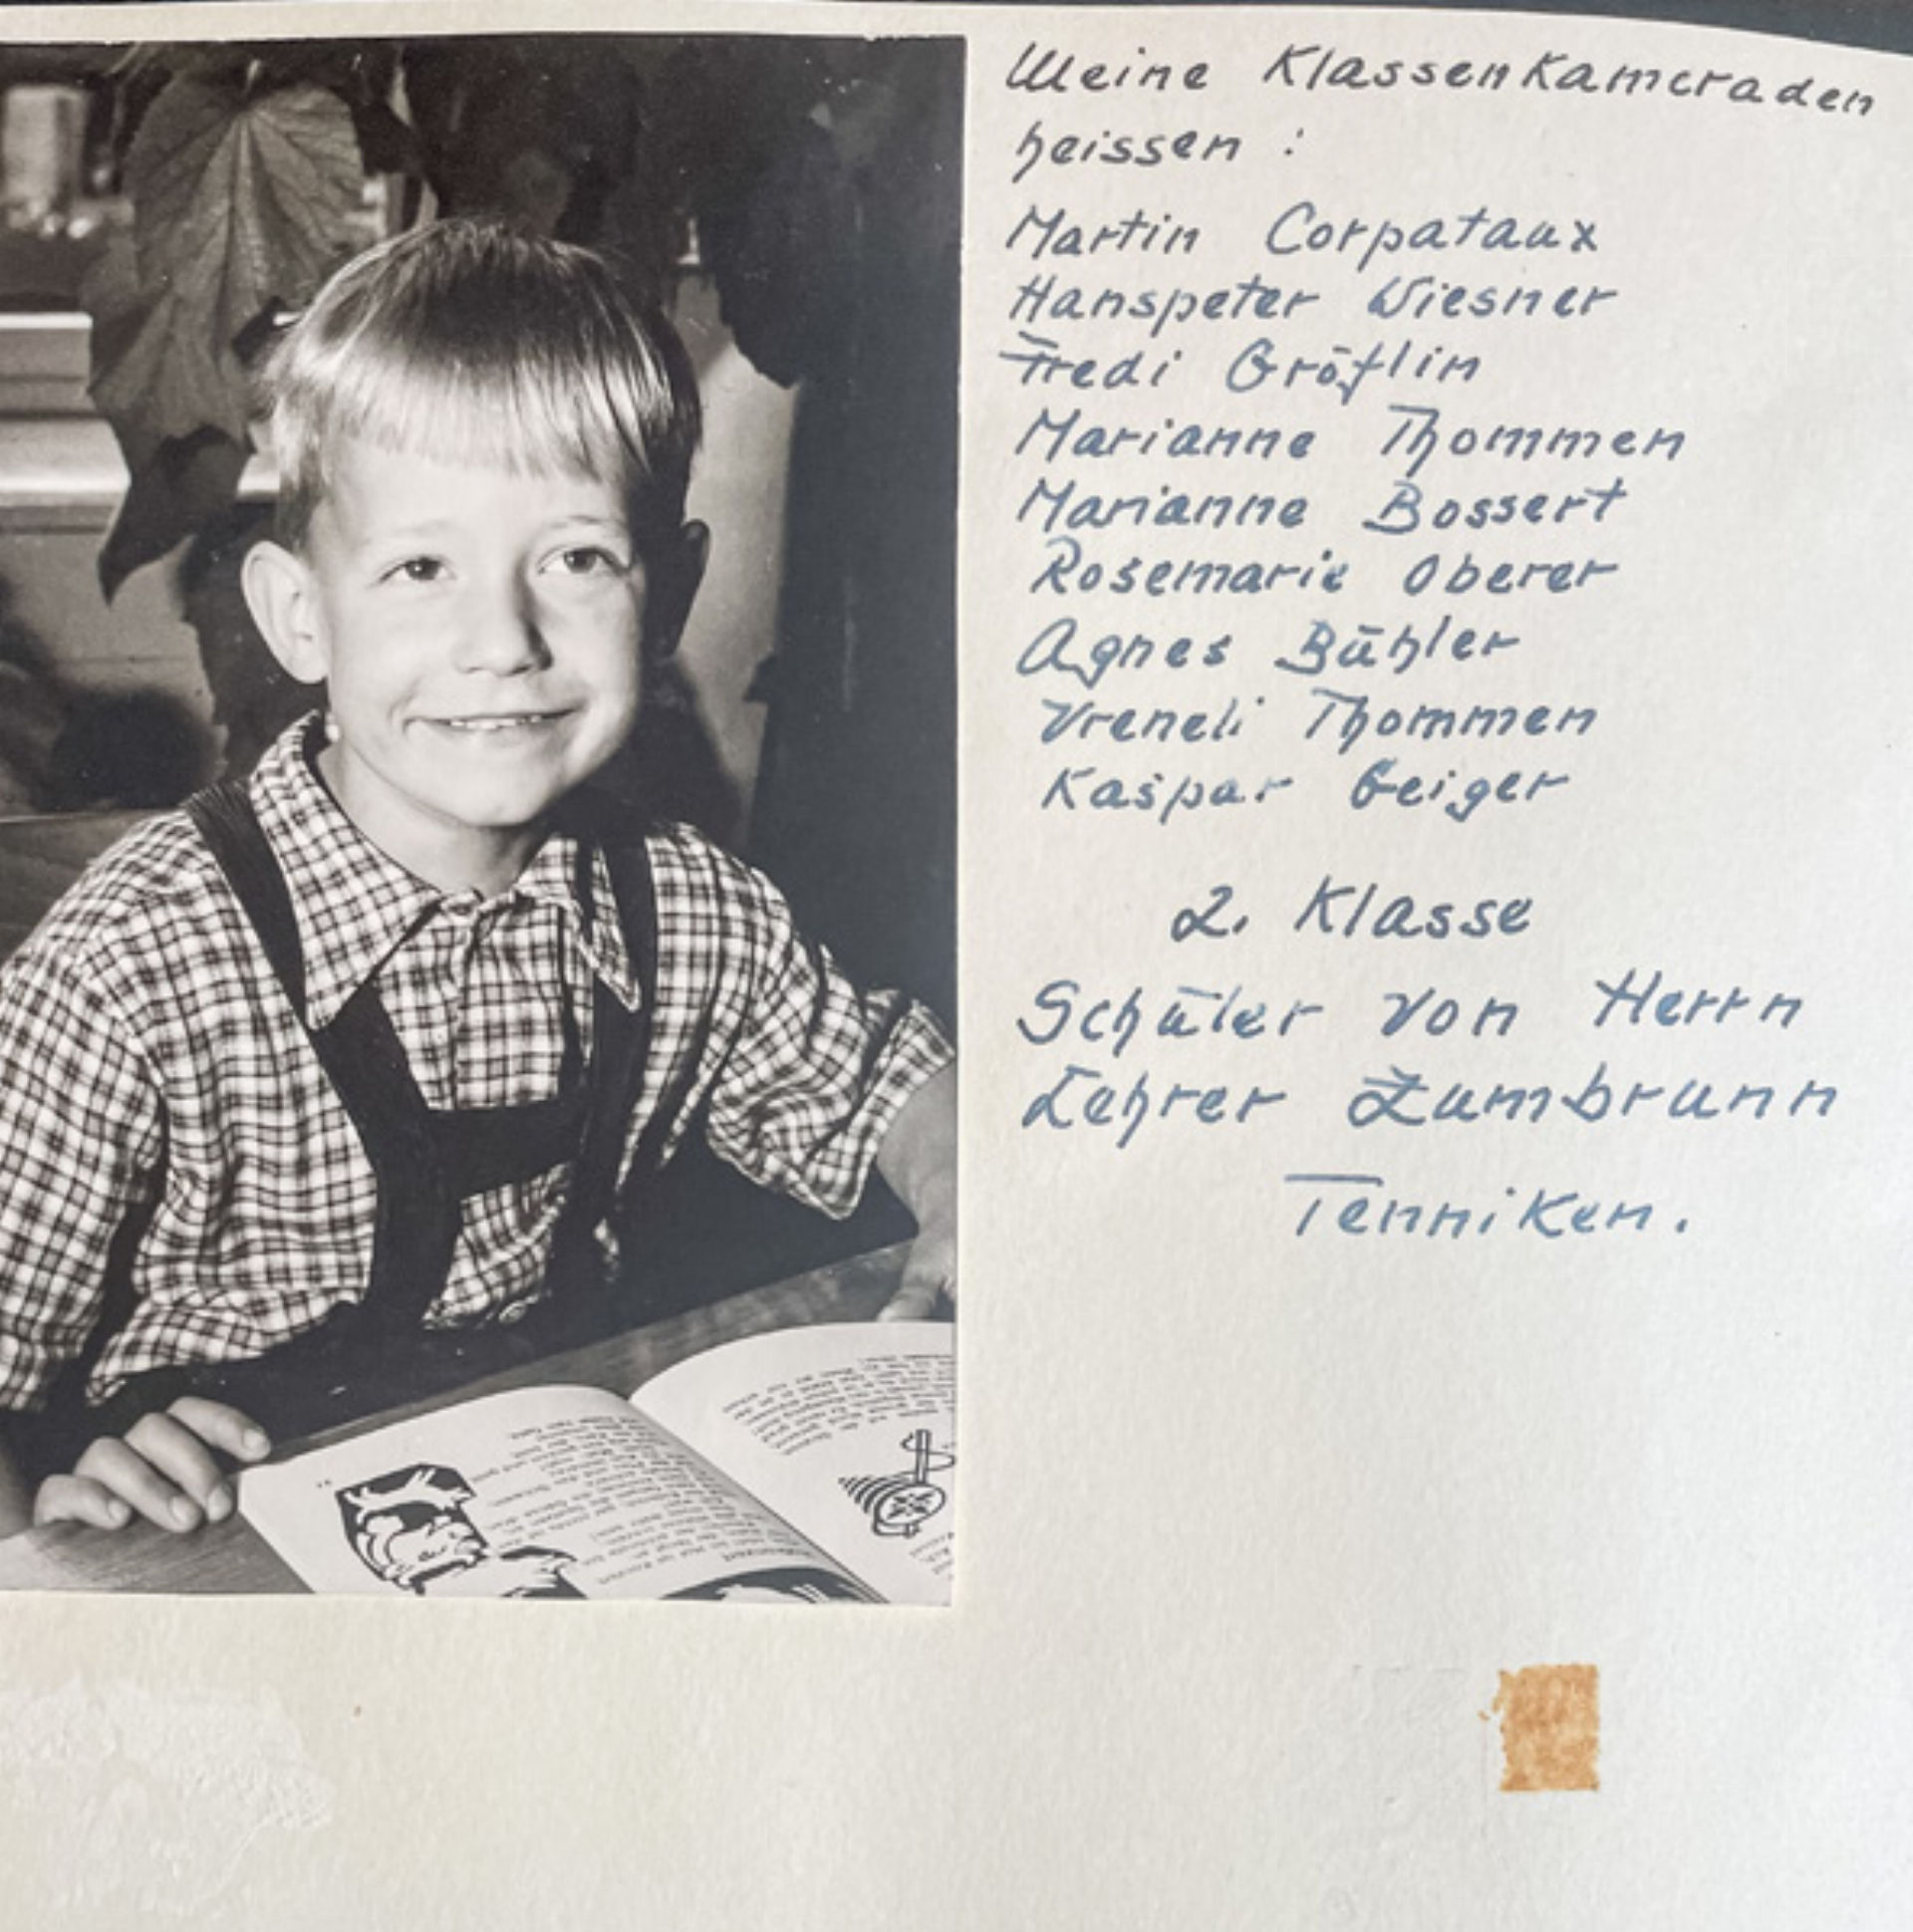 Meine Klassenkameraden
heissen :
Martin Corpataux
Hanspeter Wiesner
Fredi Gröflin
Marianne Thommen
Marianne Bossert
Rosemarie Oberer
Agnes Bühler
Vreneli Thommen
Kaspar Geiger
2. Klasse
Schüler von Herrn
Lehrer Zumbrunn
Tenniken.